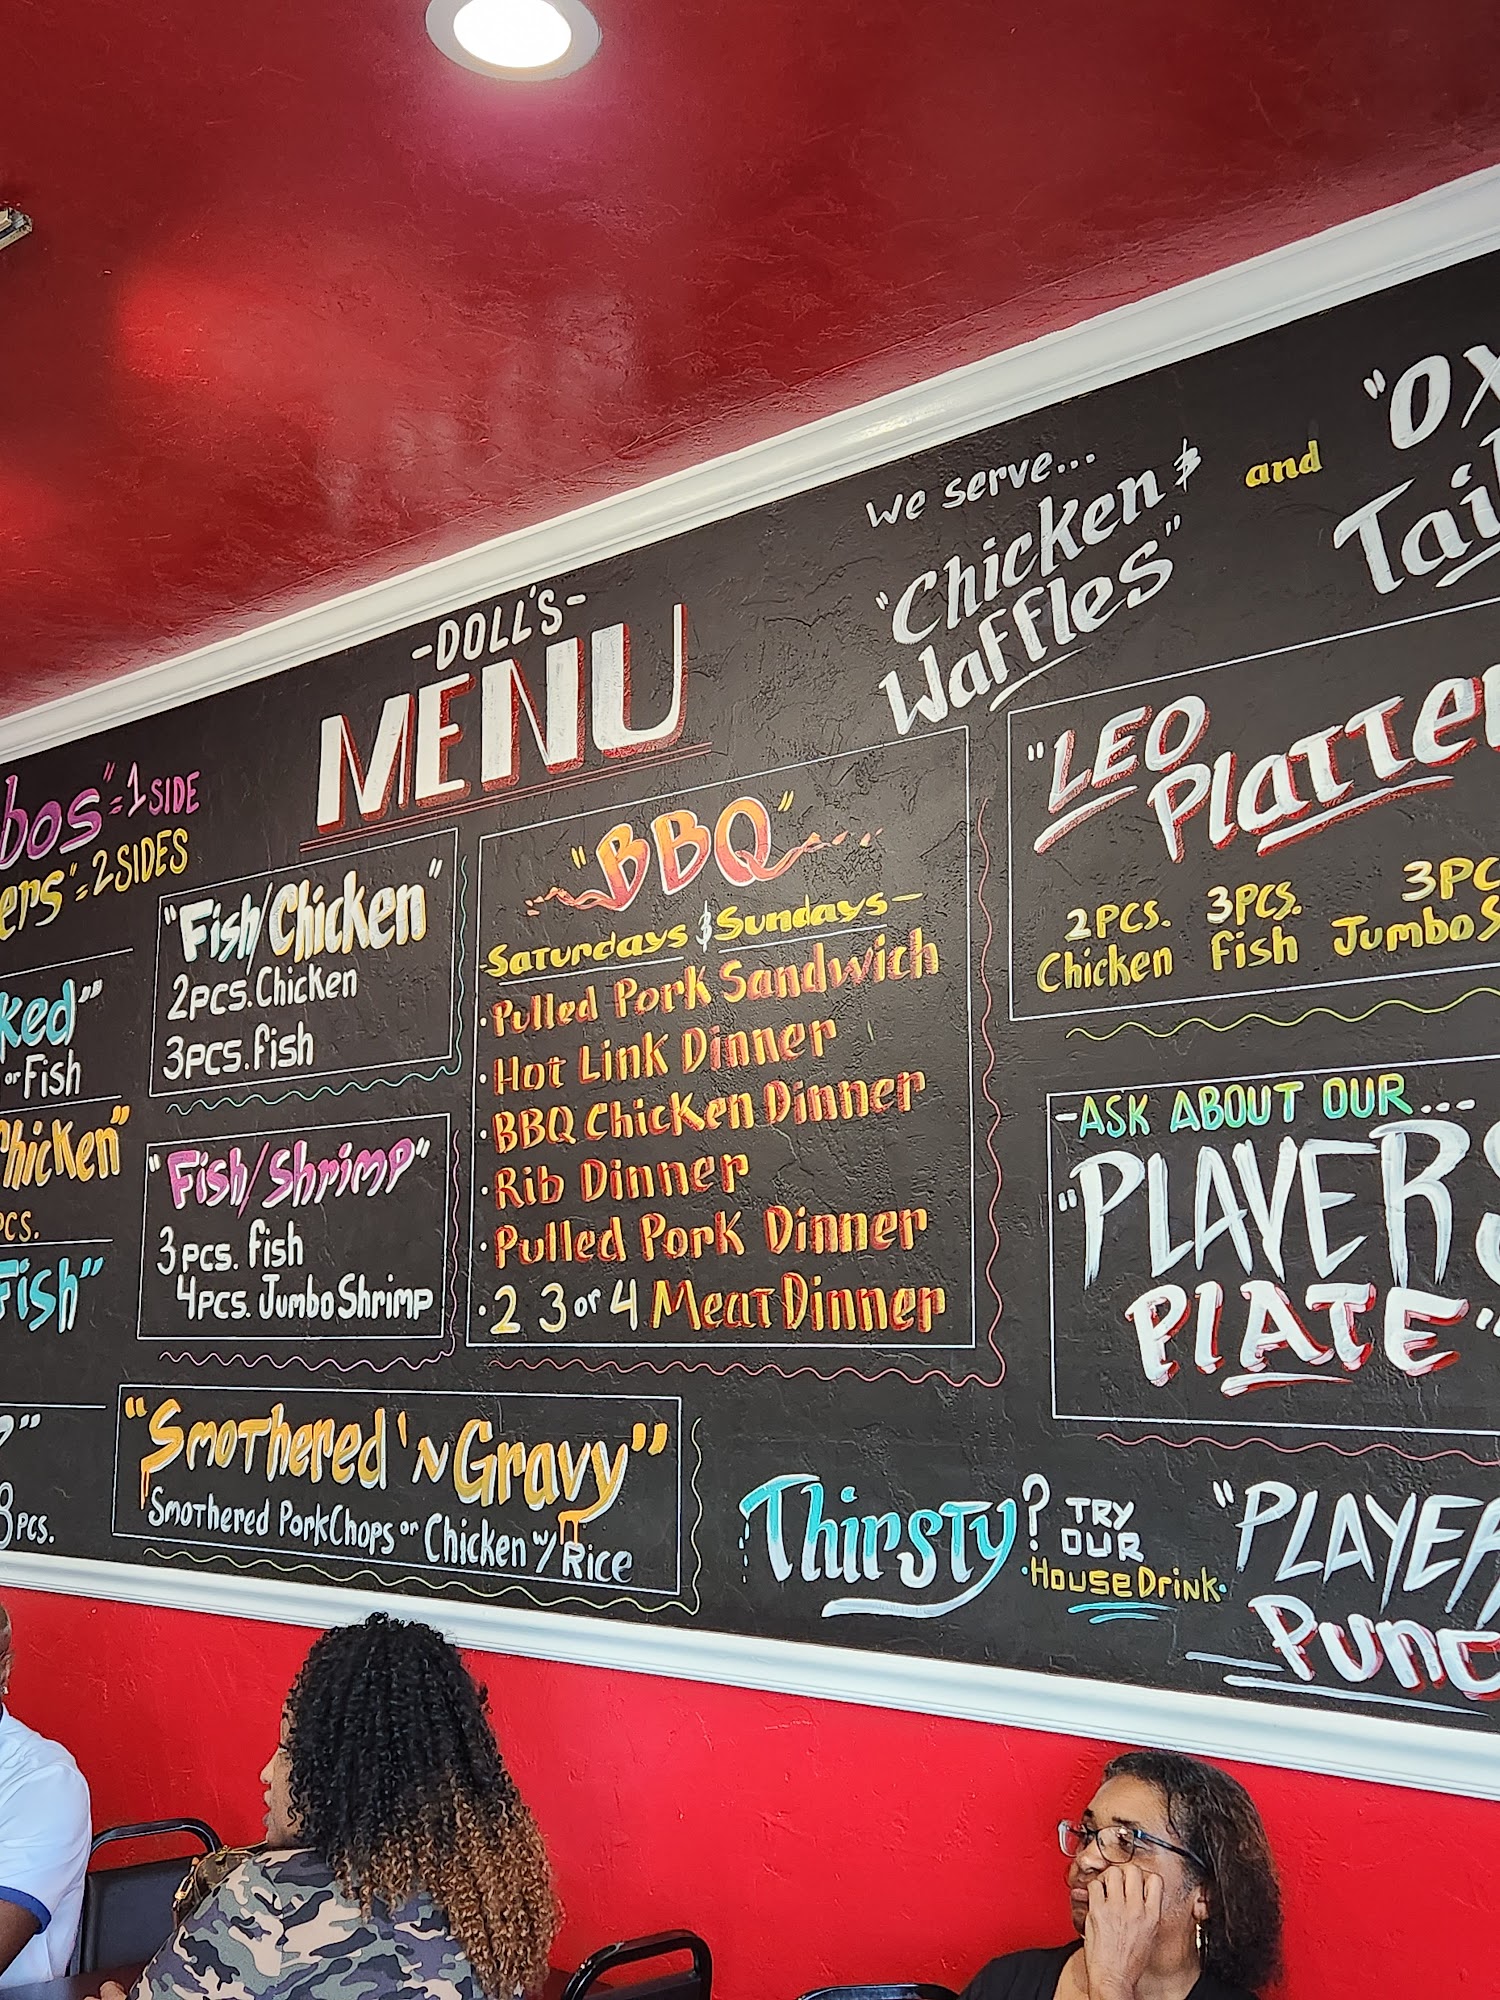 -DOLL'S-
MENU
We serve...
"Chicken &
Waffles"
and
"OX
Tail
bos" = 1 SIDE
ers" = 2 SIDES
ked"
or Fish
hicken"
PCS.
Fish"
8 PCS.
"Fish/Chicken"
2 PCS. Chicken
3 PCS. Fish
"Fish/Shrimp"
3 PCS. Fish
4 PCS. Jumbo Shrimp
"BBQ"
-Saturdays & Sundays-
·Pulled Pork Sandwich
·Hot Link Dinner
·BBQ Chicken Dinner
·Rib Dinner
·Pulled Pork Dinner
·2 3 or 4 Meat Dinner
"Smothered 'N Gravy"
Smothered Pork Chops or Chicken w/ Rice
"LEO
Platter
2 PCS. 3 PCS. 3 PC
Chicken Fish Jumbo S
-ASK ABOUT OUR...-
"PLAYERS
PLATE"
Thirsty? TRY
OUR
·House Drink·
"PLAYER
Punc